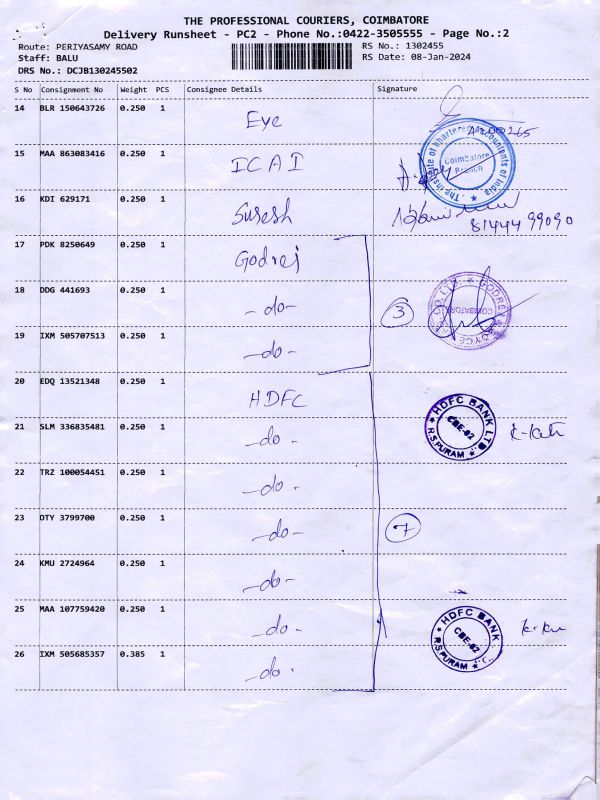 THE PROFESSIONAL COURIERS, COIMBATORE
Delivery Runsheet - PC2 - Phone No.:0422-3505555 - Page No.:2
Route: PERIYASAMY ROAD RS No.: 1302455
Staff: BALU RS Date: 08-Jan-2024
DRS No.: DCJB130245502
S No Consignment No Weight PCS Consignee Details Signature
14 BLR 150643726 0.250 1 Eye
15 MAA 863083416 0.250 1 ICAI
The Institute of Chartered Accountants of India
Coimbatore Branch
16 KDI 629171 0.250 1 Suresh
81444 99090
17 PDK 8250649 0.250 1 Godrej
18 DDG 441693 0.250 1 -do- 3
GODREJ COIMBATORE LTD.
19 IXM 505707513 0.250 1 -do-
20 EDQ 13521348 0.250 1 HDFC
21 SLM 336835481 0.250 1 -do-
HDFC BANK LTD
CBE-02
R.S.PURAM
22 TRZ 100054451 0.250 1 -do-
23 OTY 3799700 0.250 1 -do- 7
24 KMU 2724964 0.250 1 -do-
25 MAA 107759420 0.250 1 -do-
HDFC BANK
CBE-02
R.S.PURAM
26 IXM 505685357 0.385 1 -do-